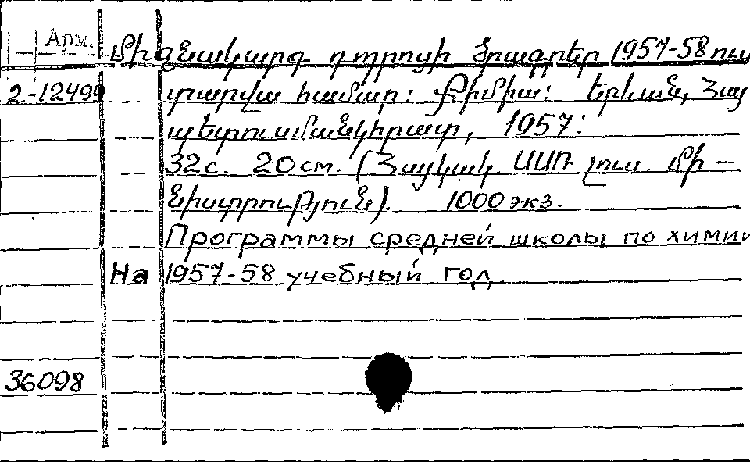 Арм.
Միջնակարգ դպրոցի ծրագրեր 1957-58 ուս
2-12499 տարվա համար: Քիմիա: Երևան, Հայ
պետուսմանկհրատ, 1957:
32с. 20см. (Հայկական ՍՍՌ լուս մի-
նիստրություն). 1000 экз.
Программы средней школы по химии
На 1957-58 учебный год.
36098